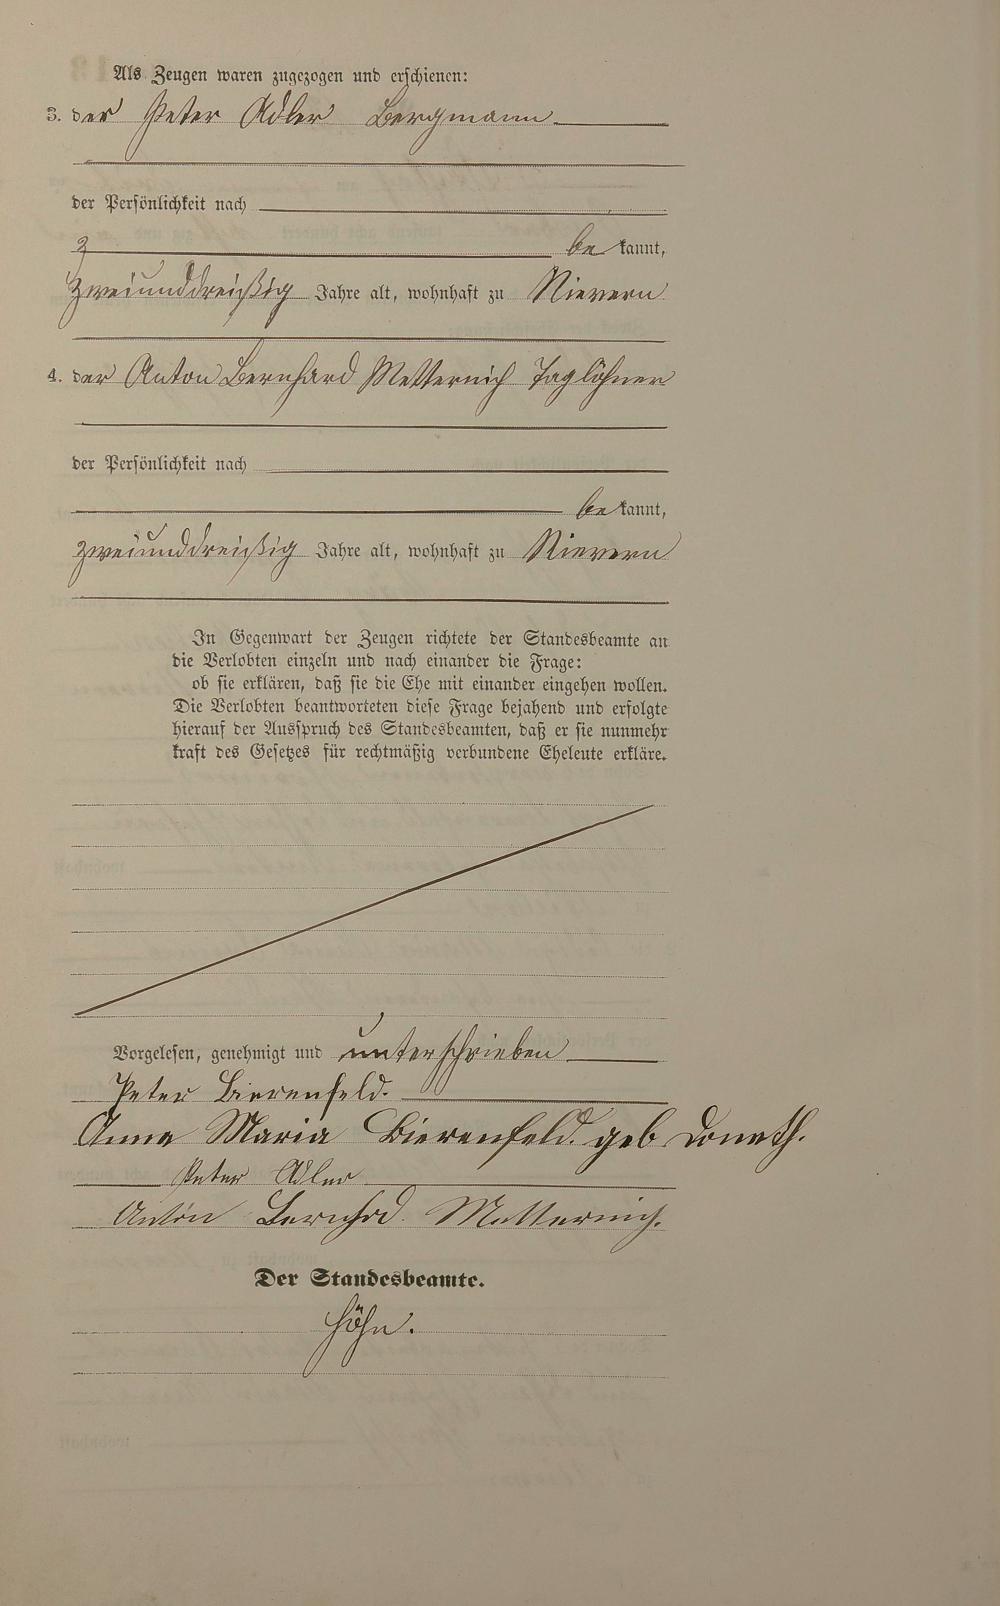 Als Zeugen waren zugezogen und erschienen:
3. der Peter Adler Bergmann
der Persönlichkeit nach
be kannt,
zweiunddreißig Jahre alt, wohnhaft zu Nievern
4. der Anton Bernhard Metternich Taglöhner
der Persönlichkeit nach
be kannt,
zweiunddreißig Jahre alt, wohnhaft zu Nievern
In Gegenwart der Zeugen richtete der Standesbeamte an
die Verlobten einzeln und nach einander die Frage:
ob sie erklären, daß sie die Ehe mit einander eingehen wollen.
Die Verlobten beantworteten diese Frage bejahend und erfolgte
hierauf der Ausspruch des Standesbeamten, daß er sie nunmehr
kraft des Gesetzes für rechtmäßig verbundene Eheleute erkläre.
Vorgelesen, genehmigt und unterschrieben
Peter Bierenfeld.
Anna Maria Bierenfeld. geb Donath.
Peter Adler
Anton Bernhd. Metternich.
Der Standesbeamte.
Höhn.